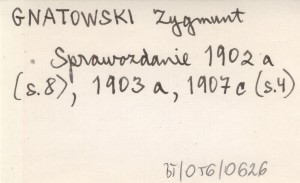 GNATOWSKI Zygmunt
Sprawozdanie 1902 a
(s.8), 1903 a, 1907 c (s.4)
BI/OTG/0626